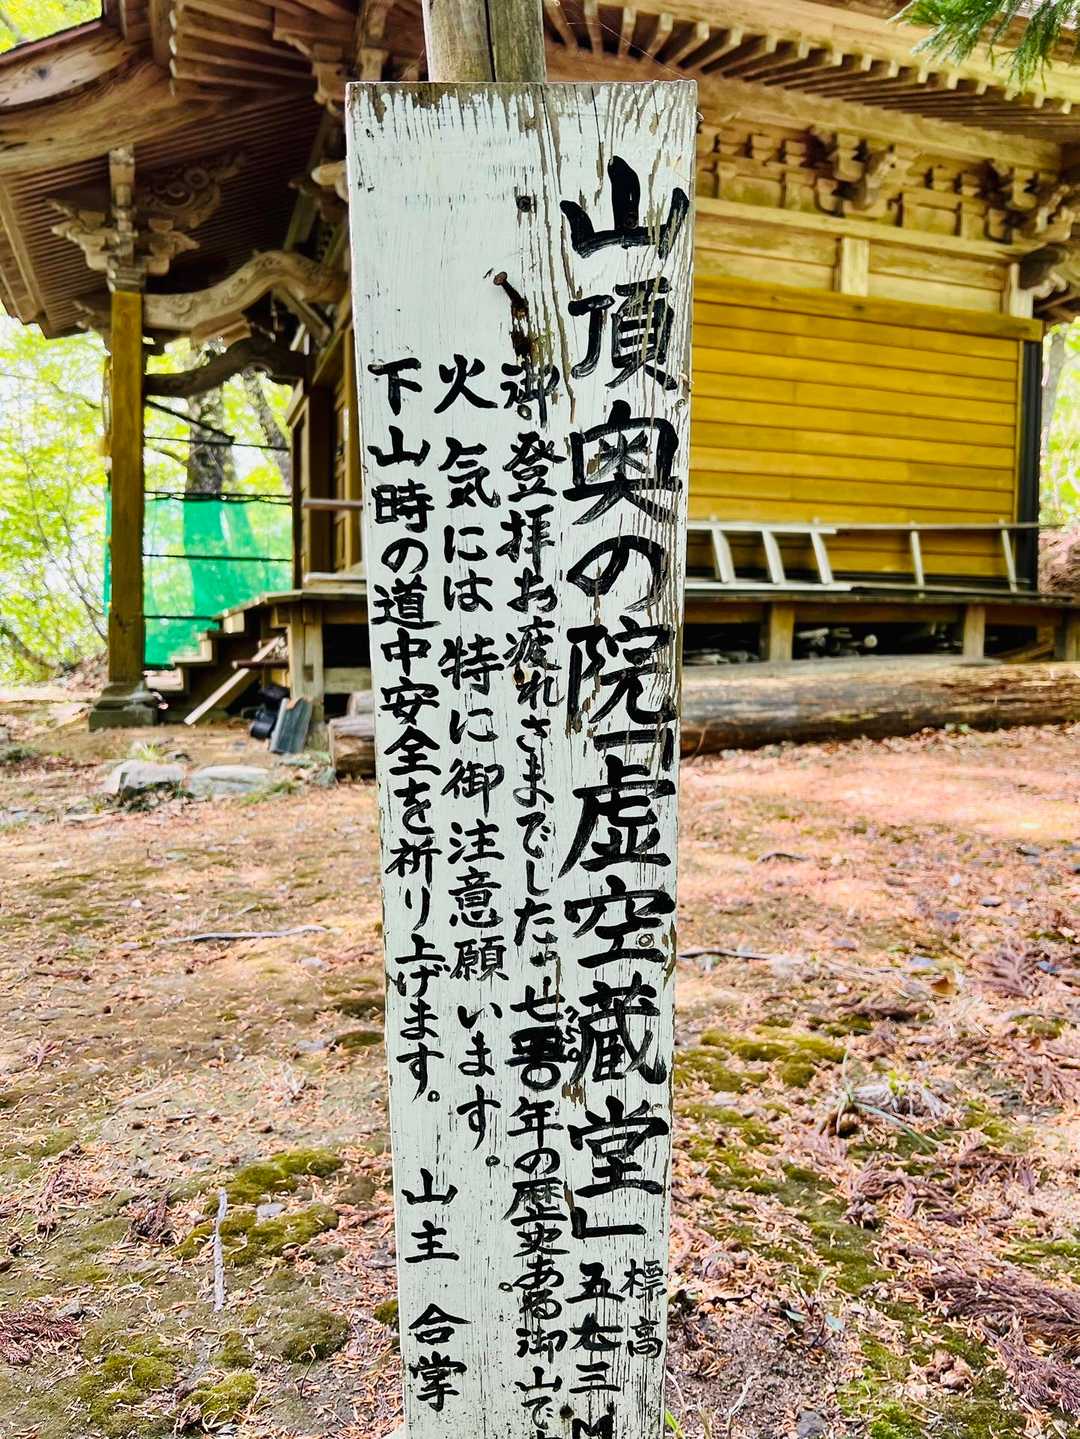 山頂奥の院「虚空蔵堂」標高五七三M
御登拝お疲れさまでした。七五〇年の歴史ある御山で
火気には特に御注意願います。
下山時の道中安全を祈り上げます。 山主 合掌